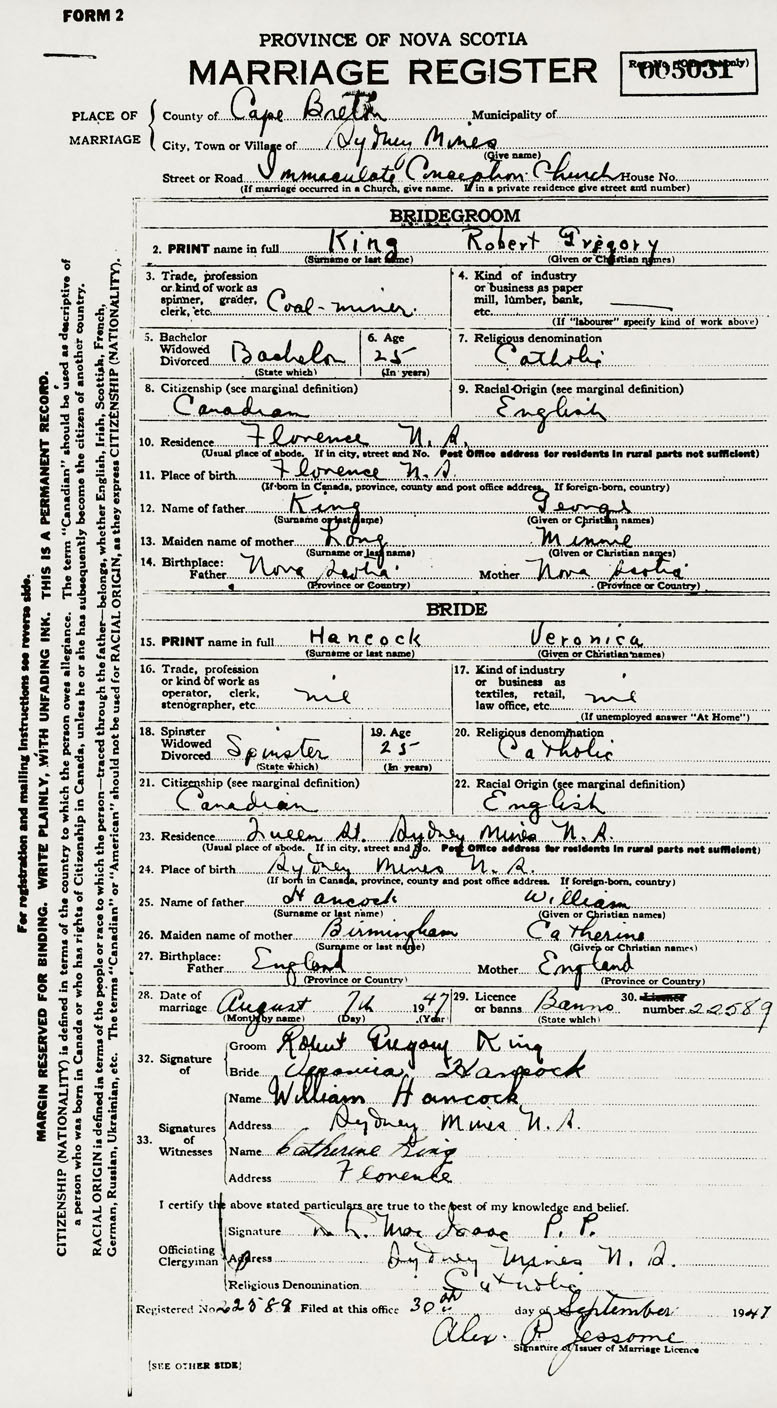 FORM 2
PROVINCE OF NOVA SCOTIA
MARRIAGE REGISTER
Reg. No. (Office use only)
005031
PLACE OF MARRIAGE
County of Cape Breton Municipality of
City, Town or Village of Sydney Mines
(Give name)
Street or Road Immaculate Conception Church House No.
(If marriage occurred in a Church, give name. If in a private residence give street and number)
BRIDEGROOM
2. PRINT name in full King Robert Gregory
(Surname or last name) (Given or Christian names)
3. Trade, profession or kind of work as spinner, grader, clerk, etc. Coal-miner
4. Kind of industry or business as paper mill, lumber, bank, etc.
(If "labourer" specify kind of work above)
5. Bachelor Widowed Divorced Bachelor
(State which)
6. Age 25
(In years)
7. Religious denomination
Catholic
8. Citizenship (see marginal definition)
Canadian
9. Racial Origin (see marginal definition)
English
10. Residence Florence N.S.
(Usual place of abode. If in city, street and No. Post Office address for residents in rural parts not sufficient)
11. Place of birth Florence N.S.
(If born in Canada, province, county and post office address. If foreign-born, country)
12. Name of father King George
(Surname or last name) (Given or Christian names)
13. Maiden name of mother Long Minnie
(Surname or last name) (Given or Christian names)
14. Birthplace: Father Nova Scotia Mother Nova Scotia
(Province or Country) (Province or Country)
BRIDE
15. PRINT name in full Hancock Veronica
(Surname or last name) (Given or Christian names)
16. Trade, profession or kind of work as operator, clerk, stenographer, etc. nil
17. Kind of industry or business as textiles, retail, law office, etc. nil
(If unemployed answer "At Home")
18. Spinster Widowed Divorced Spinster
(State which)
19. Age 25
(In years)
20. Religious denomination
Catholic
21. Citizenship (see marginal definition)
Canadian
22. Racial Origin (see marginal definition)
English
23. Residence Queen St. Sydney Mines N.S.
(Usual place of abode. If in city, street and No. Post Office address for residents in rural parts not sufficient)
24. Place of birth Sydney Mines N.S.
(If born in Canada, province, county and post office address. If foreign-born, country)
25. Name of father Hancock William
(Surname or last name) (Given or Christian names)
26. Maiden name of mother Birmingham Catherine
(Surname or last name) (Given or Christian names)
27. Birthplace: Father England Mother England
(Province or Country) (Province or Country)
28. Date of marriage August 7th 1947
(Month by name) (Day) (Year)
29. Licence or banns Banns
(State which)
30. Licence number 22589
32. Signature of
Groom Robert Gregory King
Bride Veronica Hancock
33. Signatures of Witnesses
Name William Hancock
Address Sydney Mines N.S.
Name Catherine King
Address Florence
I certify the above stated particulars are true to the best of my knowledge and belief.
Officiating Clergyman
Signature Mac Isaac P.P.
Address Sydney Mines N.S.
Religious Denomination Catholic
Registered No. 22589 Filed at this office 30th day of September 1947
Alex. P. Jessome
Signature of Issuer of Marriage Licence
[SEE OTHER SIDE]
For registration and mailing instructions see reverse side.
MARGIN RESERVED FOR BINDING. WRITE PLAINLY, WITH UNFADING INK. THIS IS A PERMANENT RECORD.
CITIZENSHIP (NATIONALITY) is defined in terms of the country to which the person owes allegiance. The term "Canadian" should be used as descriptive of
a person who was born in Canada or who has rights of Citizenship in Canada, unless he or she has subsequently become the citizen of another country.
RACIAL ORIGIN is defined in terms of the people or race to which the person—traced through the father—belongs, whether English, Irish, Scottish, French,
German, Russian, Ukrainian, etc. The terms "Canadian" or "American" should not be used for RACIAL ORIGIN, as they express CITIZENSHIP (NATIONALITY).